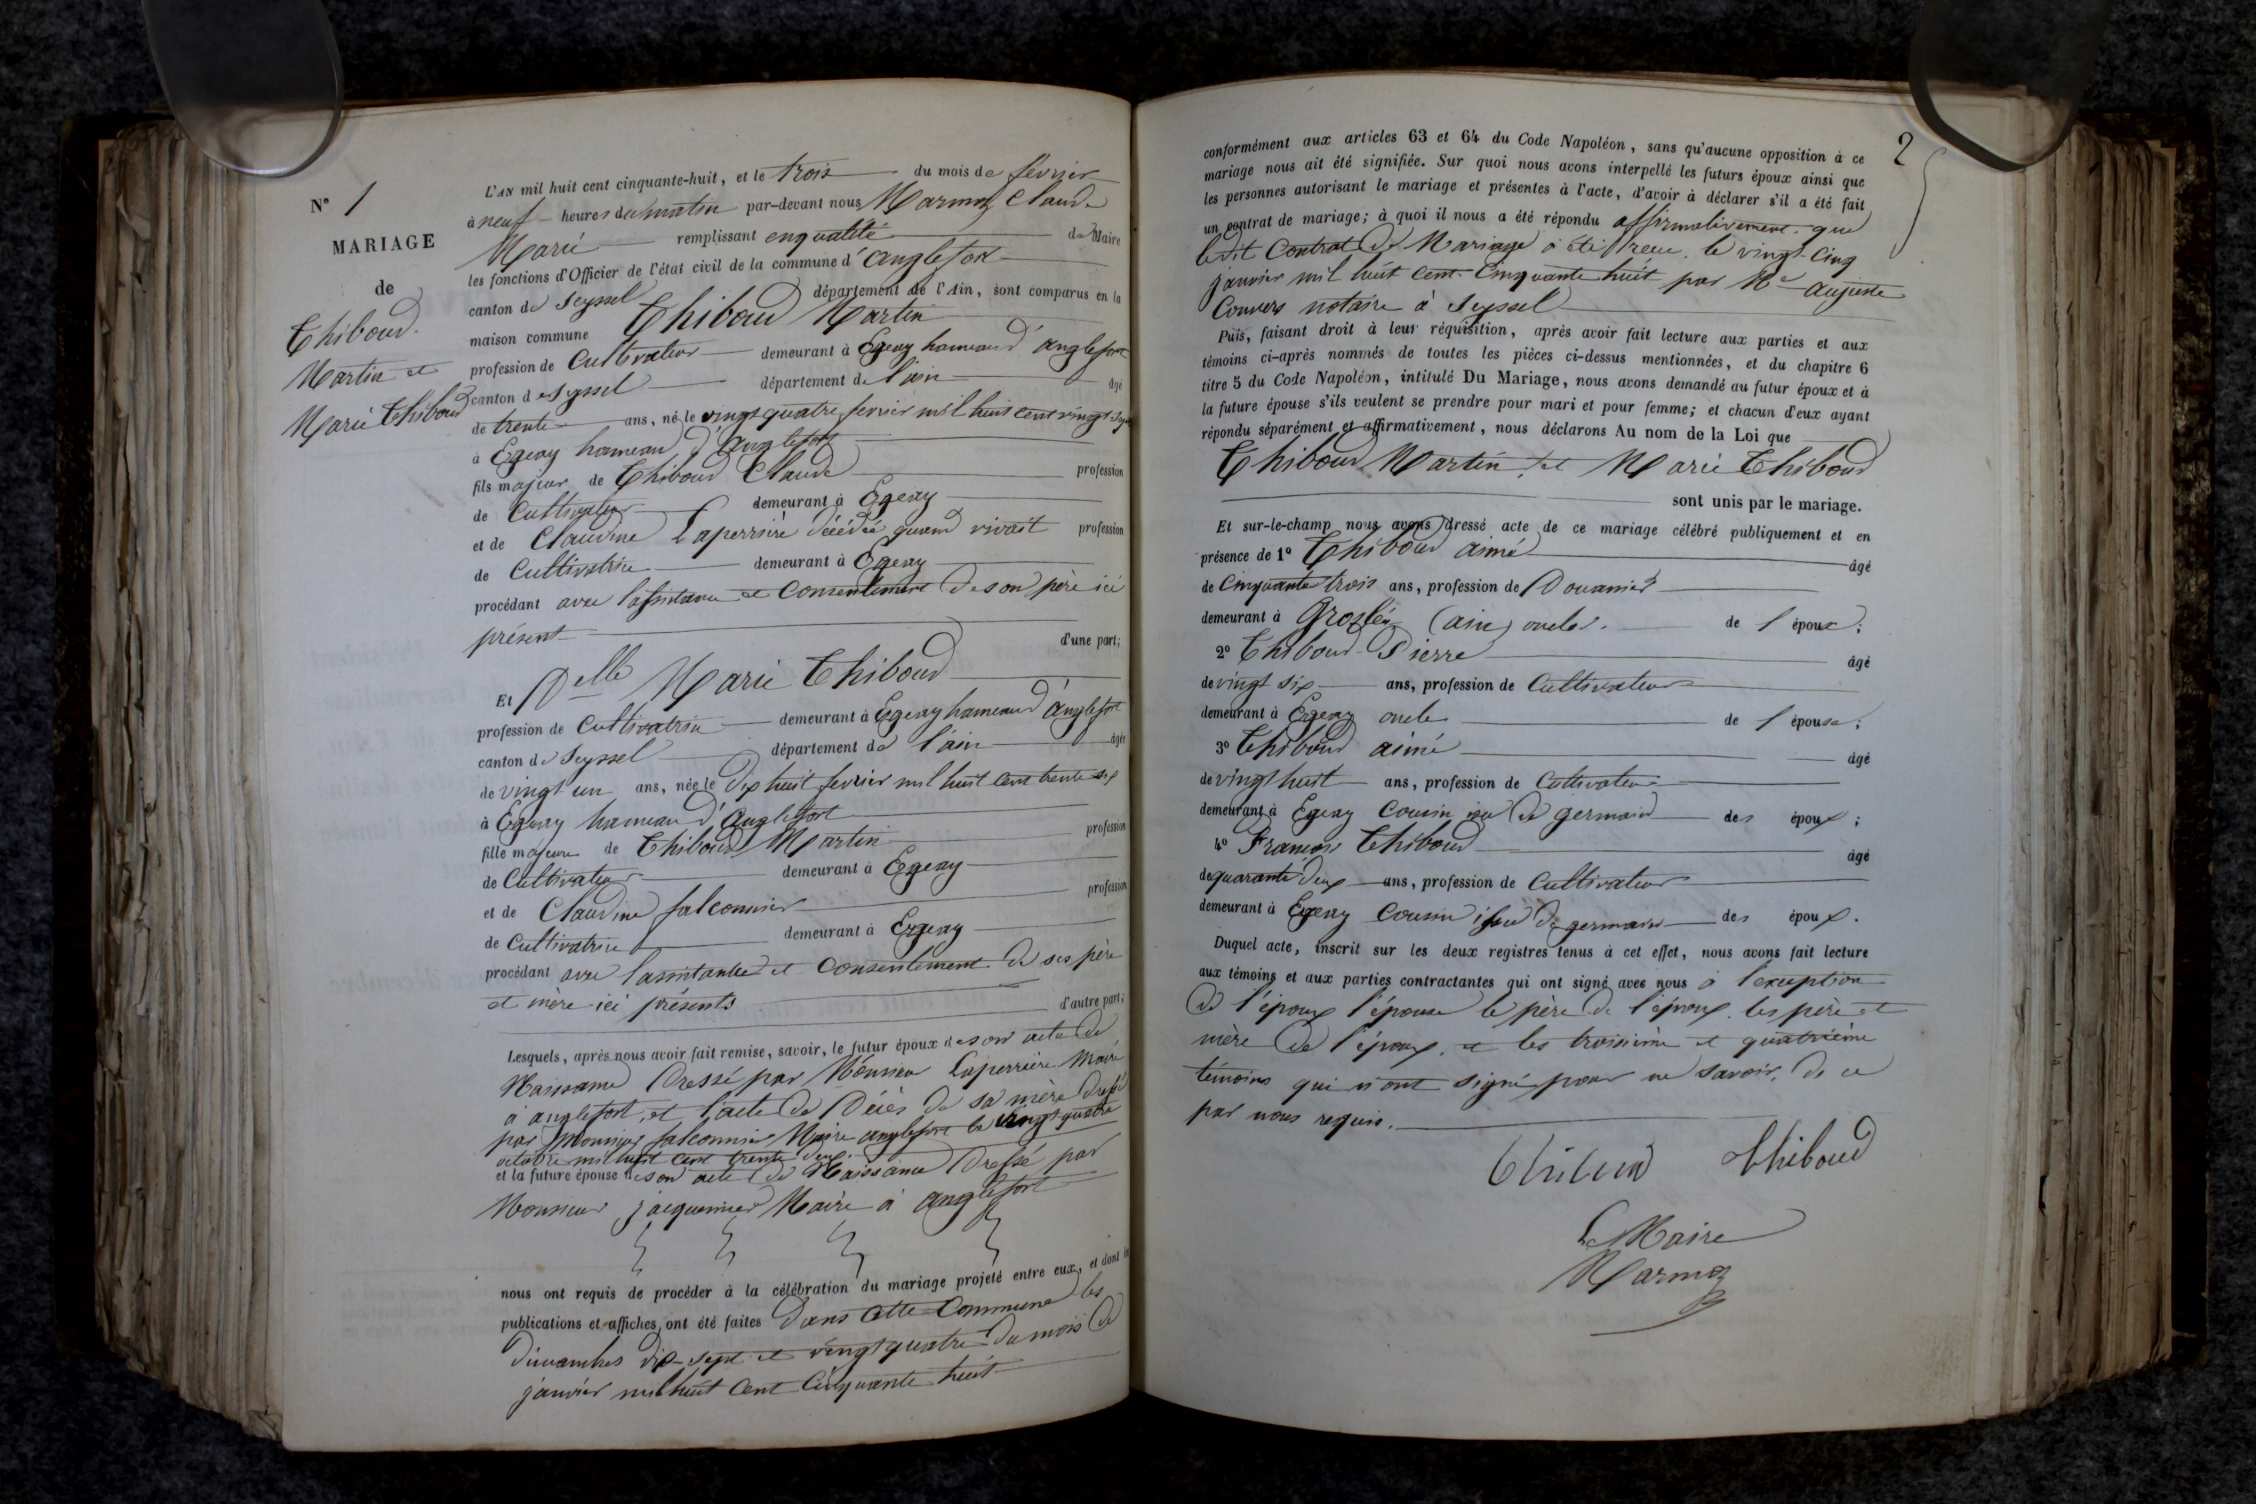 N° 1
MARIAGE
de
Thiboud
Martin et
Marie Thiboud
L'AN mil huit cent cinquante-huit, et le trois du mois de fevrier
à neuf heures du matin par-devant nous Marmoz Claude
Marie remplissant en qualité de Maire
les fonctions d'Officier de l'état civil de la commune d'anglefort
canton de Seyssel département de l'Ain, sont comparus en la
maison commune Thiboud Martin
profession de Cultivateur demeurant à Egeay hameau d'anglefort
canton de Seyssel département de l'ain âgé
de trente ans, né le vingt quatre fevrier mil huit cent vingt
à Egeay hameau d'anglefort
fils majeur de Thiboud Claude profession
de Cultivateur demeurant à Ergeay
et de Claudine Laperrière décédée quand vivait profession
de Cultivatrice demeurant à Egeay
procédant avec l'assistance et Consentement de son père ici
présent d'une part;
Et Delle Marie Thiboud
profession de Cultivatrice demeurant à Egeay hameau d'anglefort
canton de Seyssel département de l'ain âgée
de vingt un ans, née le dix huit fevrier mil huit cent trente six
à Egeay hameau d'anglefort
fille majeure de Thiboud Martin profession
de Cultivateur demeurant à Egeay
et de Claudine falconnier profession
de Cultivatrice demeurant à Ergeay
procédant avec l'assistance et Consentement de ses père
et mère ici présents d'autre part;
Lesquels, après nous avoir fait remise, savoir, le futur époux de son acte de
Naissance Dressé par Monsieur Laperrière Maire
à anglefort, et l'acte de Décès de sa mère dressé
par Monsieur falconnier Maire anglefort le vingt quatre
octobre mil huit cent trente deux.
et la future épouse de son acte de Naissance Dressé par
Monsieur jacquemier Maire à anglefort
nous ont requis de procéder à la célébration du mariage projeté entre eux, et dont les
publications et affiches ont été faites Dans cette Commune les
dimanches dix-sept et vingt quatre du mois de
janvier mil huit Cent Cinquante huit
2
conformément aux articles 63 et 64 du Code Napoléon, sans qu'aucune opposition à ce
mariage nous ait été signifiée. Sur quoi nous avons interpellé les futurs époux ainsi que
les personnes autorisant le mariage et présentes à l'acte, d'avoir à déclarer s'il a été fait
un contrat de mariage; à quoi il nous a été répondu affirmativement que
ledit Contrat de Mariage a été reçu le vingt-Cinq
janvier mil huit cent Cinquante huit par Me auguste
Couvers notaire à Seyssel
Puis, faisant droit à leur réquisition, après avoir fait lecture aux parties et aux
témoins ci-après nommés de toutes les pièces ci-dessus mentionnées, et du chapitre 6
titre 5 du Code Napoléon, intitulé Du Mariage, nous avons demandé au futur époux et à
la future épouse s'ils veulent se prendre pour mari et pour femme; et chacun d'eux ayant
répondu séparément et affirmativement, nous déclarons Au nom de la Loi que
Thiboud Martin et Marie Thiboud
sont unis par le mariage.
Et sur-le-champ nous avons dressé acte de ce mariage célébré publiquement et en
présence de 1° Thiboud aimé âgé
de Cinquante trois ans, profession de Douanier
demeurant à Groslée (ain) oncle de l'époux;
2° Thiboud Pierre âgé
de vingt six ans, profession de Cultivateur
demeurant à Egeay oncle de l'épouse;
3° Thiboud aimé âgé
de vingt huit ans, profession de Cultivateur
demeurant à Egeay Cousin issu de germain des époux;
4° François Thiboud âgé
de quarante deux ans, profession de Cultivateur
demeurant à Egeay Cousin issu de germain des époux.
Duquel acte, inscrit sur les deux registres tenus à cet effet, nous avons fait lecture
aux témoins et aux parties contractantes qui ont signé avec nous à l'exception
de l'époux l'épouse le père de l'époux les père et
mère de l'époux, et les troisième et quatrième
témoins qui n'ont signé pour ne savoir, de ce
par nous requis.
Thiboud Thiboud
Le Maire
Marmoz